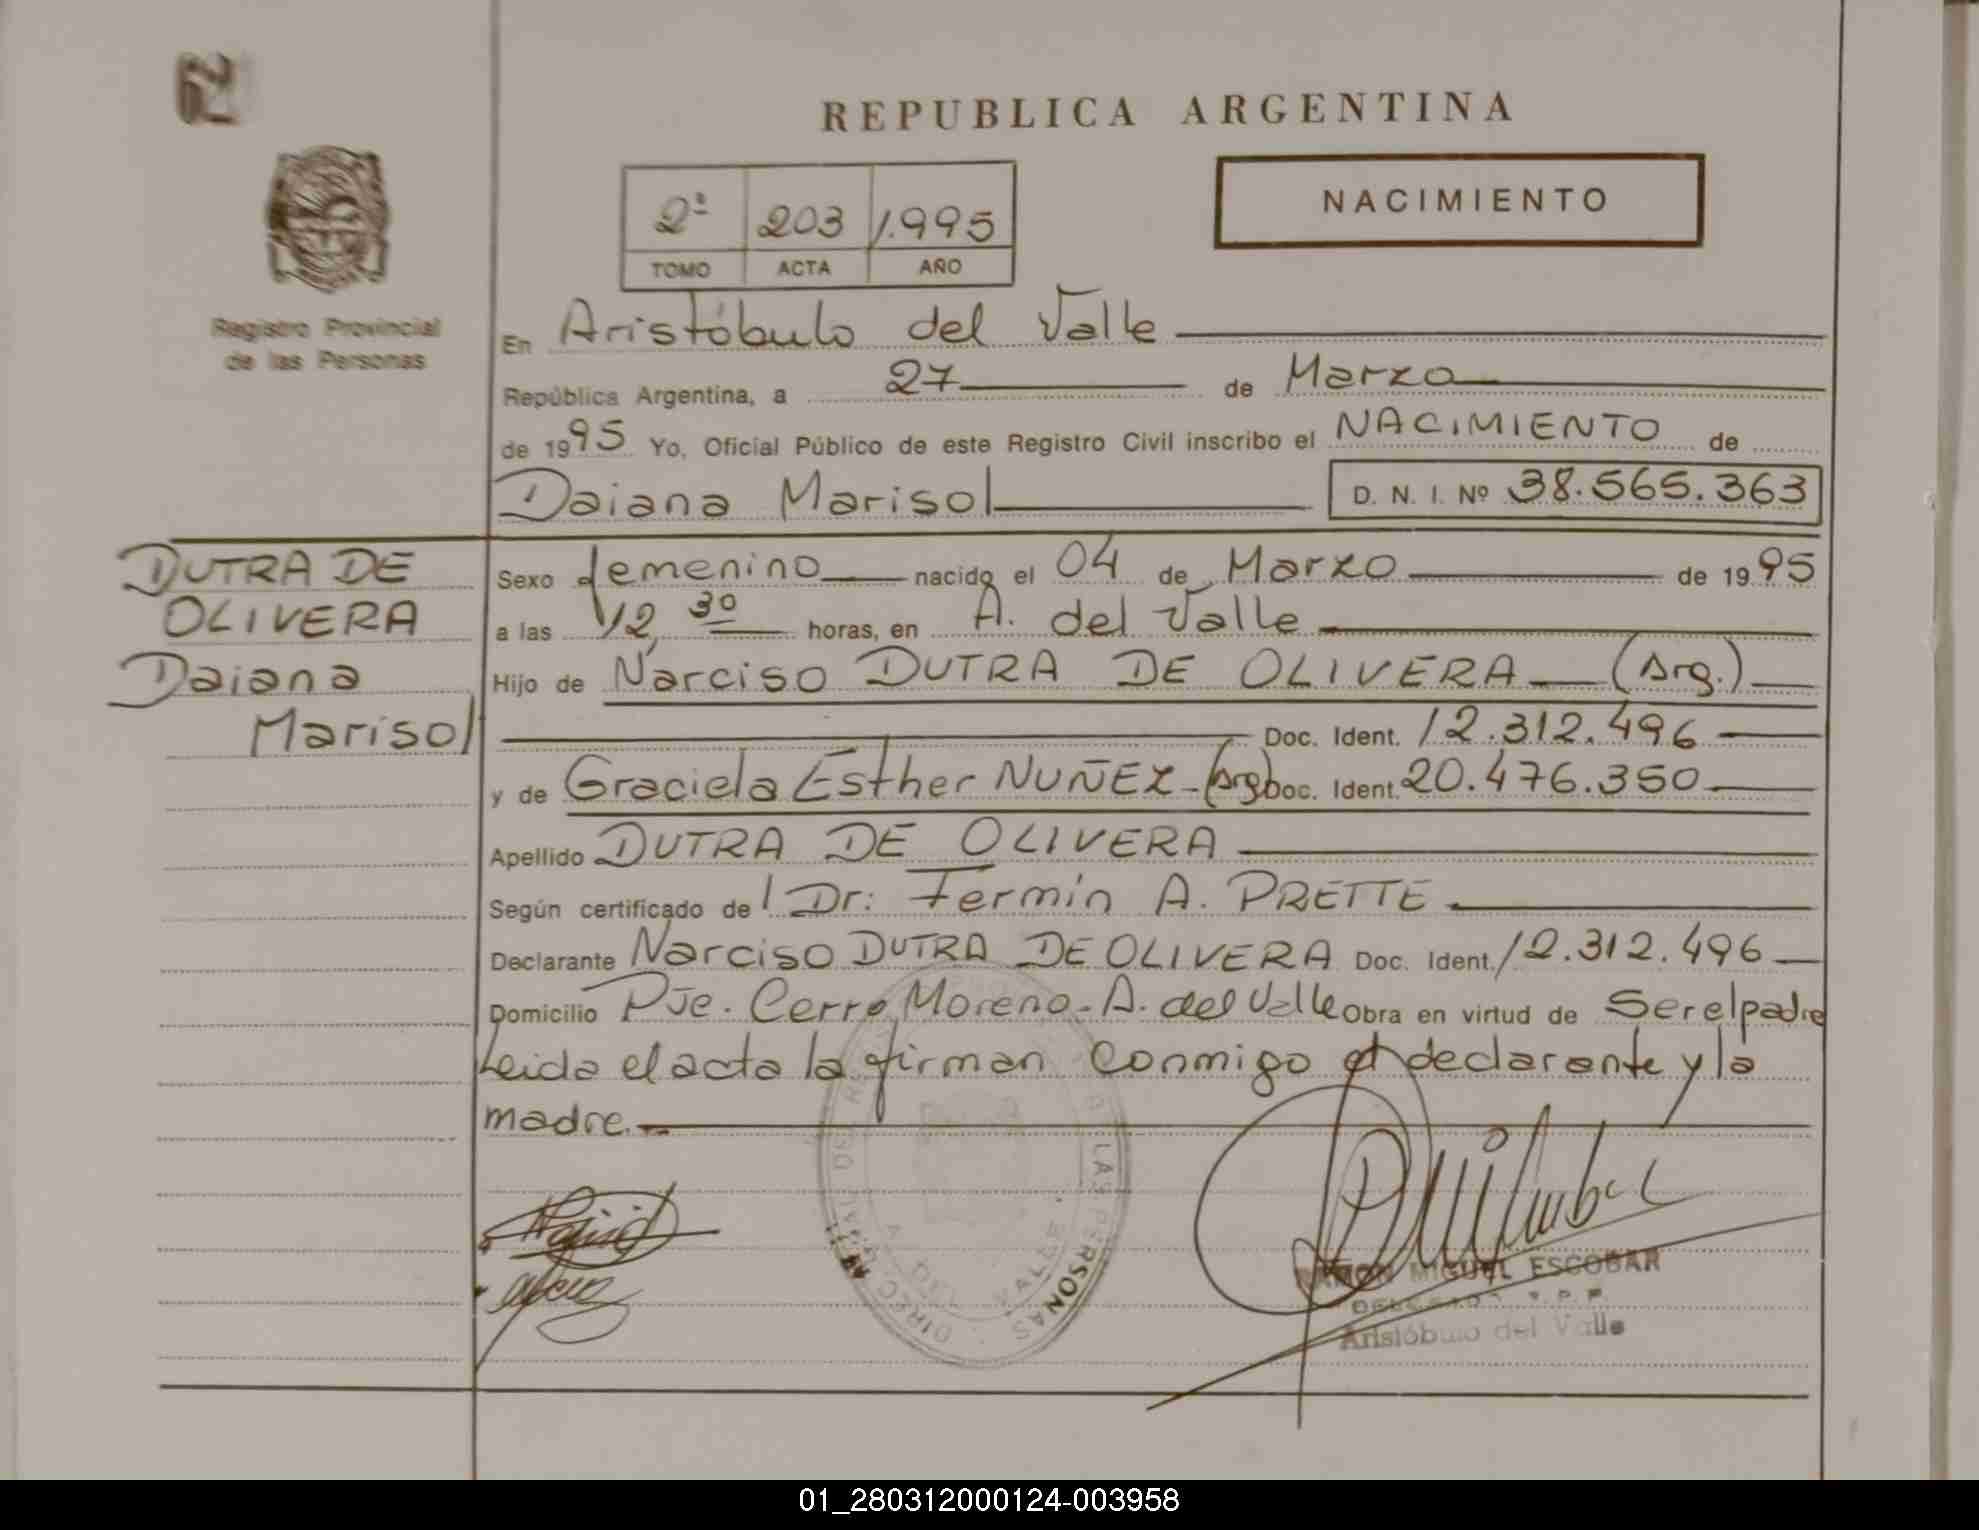 62
REPUBLICA ARGENTINA
NACIMIENTO
2º 203 1.995
TOMO ACTA AÑO
Registro Provincial
de las Personas
En Aristóbulo del Valle
República Argentina, a 27 de Marzo
de 1995 Yo, Oficial Público de este Registro Civil inscribo el NACIMIENTO de
Daiana Marisol D. N. I. Nº 38.565.363
DUTRA DE
OLIVERA
Daiana
Marisol
Sexo femenino nacido el 04 de Marzo de 1995
a las 12,30 horas, en A. del Valle
Hijo de Narciso DUTRA DE OLIVERA (Arg.)
Doc. Ident. 12.312.496
y de Graciela Esther NUÑEZ - (Arg) Doc. Ident. 20.476.350
Apellido DUTRA DE OLIVERA
Según certificado del Dr: Fermín A. PRETTE
Declarante Narciso DUTRA DE OLIVERA Doc. Ident. 12.312.496
Domicilio Pje. Cerro Moreno - A. del Valle Obra en virtud de ser el padre
Leida el acta la firman conmigo el declarante y la
madre.
DIREC. PERSONAS
A. DEL VALLE
RAMON MIGUEL ESCOBAR
Aristóbulo del Valle
01_280312000124-003958